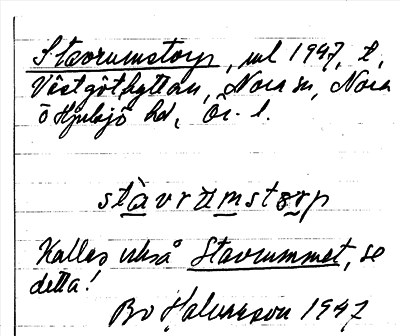 Stavrumstorp, ml 1947, t,
Västgöthyttan, Nora sn, Nora
o Hjulsjö hd, Ör. l.
stàvrùmstørp
Kallas också Stavrummet, se
detta!
Bo Halvarsson 1947